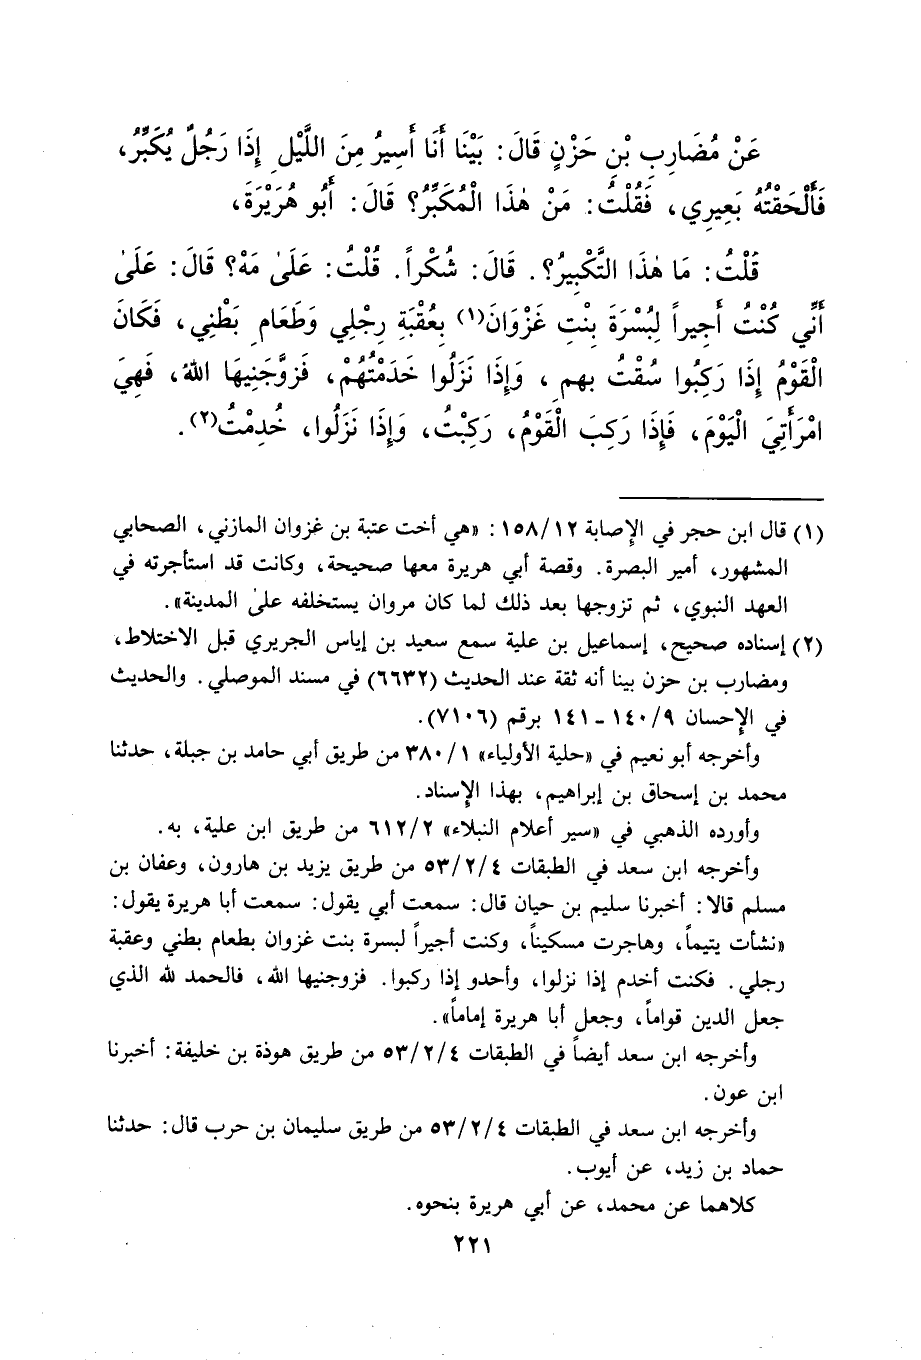 عَنْ مُضَارِبِ بْنِ حَزْنٍ قَالَ: بَيْنَا أَنَا أَسِيرُ مِنَ اللَّيْلِ إِذَا رَجُلٌ يُكَبِّرُ،
فَأَلْحَقْتُهُ بَعِيرِي، فَقُلْتُ: مَنْ هٰذَا الْمُكَبِّرُ؟ قَالَ: أَبُو هُرَيْرَةَ،
قُلْتُ: مَا هٰذَا التَّكْبِيرُ؟. قَالَ: شُكْراً. قُلْتُ: عَلَىٰ مَهْ؟ قَالَ: عَلَىٰ
أَنِّي كُنْتُ أَجِيراً لِبُسْرَةَ بِنْتِ غَزْوَانَ(١) بِعُقْبَةِ رِجْلِي وَطَعَامِ بَطْنِي، فَكَانَ
الْقَوْمُ إِذَا رَكِبُوا سُقْتُ بِهِمِ، وَإِذَا نَزَلُوا خَدَمْتُهُمْ، فَزَوَّجَنِيهَا اللهُ، فَهِيَ
امْرَأَتِيَ الْيَوْمَ، فَإِذَا رَكِبَ الْقَوْمُ، رَكِبْتُ، وَإِذَا نَزَلُوا، خُدِمْتُ(٢).
(١) قال ابن حجر في الإصابة ١٥٨/١٢: «هي أخت عتبة بن غزوان المازني، الصحابي
المشهور، أمير البصرة. وقصة أبي هريرة معها صحيحة، وكانت قد استأجرته في
العهد النبوي، ثم تزوجها بعد ذلك لما كان مروان يستخلفه علىٰ المدينة».
(٢) إسناده صحيح، إسماعيل بن علية سمع سعيد بن إياس الجريري قبل الاختلاط،
ومضارب بن حزن بينا أنه ثقة عند الحديث (٦٦٣٢) في مسند الموصلي. والحديث
في الإحسان ١٤٠/٩ - ١٤١ برقم (٧١٠٦).
وأخرجه أبو نعيم في «حلية الأولياء» ٣٨٠/١ من طريق أبي حامد بن جبلة، حدثنا
محمد بن إسحاق بن إبراهيم، بهذا الإسناد.
وأورده الذهبي في «سير أعلام النبلاء» ٦١٢/٢ من طريق ابن علية، به.
وأخرجه ابن سعد في الطبقات ٥٣/٢/٤ من طريق يزيد بن هارون، وعفان بن
مسلم قالا: أخبرنا سليم بن حيان قال: سمعت أبي يقول: سمعت أبا هريرة يقول:
«نشأت يتيماً، وهاجرت مسكيناً، وكنت أجيراً لبسرة بنت غزوان بطعام بطني وعقبة
رجلي. فكنت أخدم إذا نزلوا، وأحدو إذا ركبوا. فزوجنيها الله، فالحمد لله الذي
جعل الدين قواماً، وجعل أبا هريرة إماماً».
وأخرجه ابن سعد أيضاً في الطبقات ٥٣/٢/٤ من طريق هوذة بن خليفة: أخبرنا
ابن عون.
وأخرجه ابن سعد في الطبقات ٥٣/٢/٤ من طريق سليمان بن حرب قال: حدثنا
حماد بن زيد، عن أيوب.
كلاهما عن محمد، عن أبي هريرة بنحوه.
٢٢١